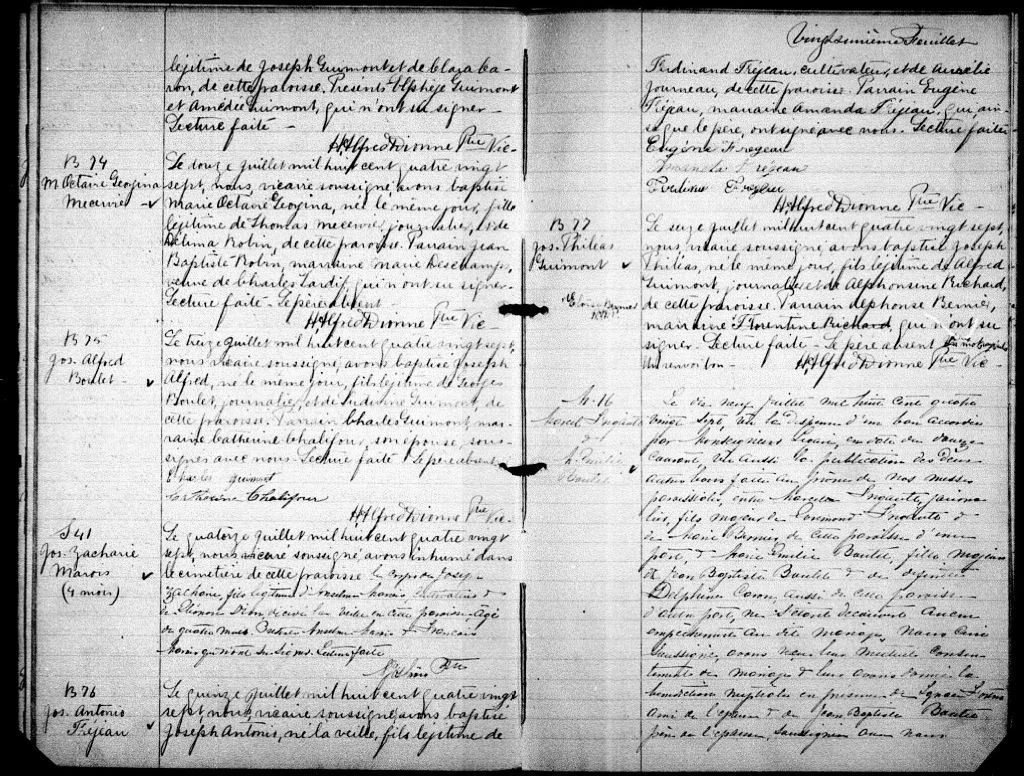 légitime de Joseph Guimont et de Clara Ca-
ron, de cette paroisse. Présents Elphège Guimont
et Amédé Guimont, qui n'ont su signer.
Lecture faite —
H. Alfred Dionne Ptre Vic—
B 74
M Octavie Géorgina
Mecuire
Le douze juillet mil huit cent quatre vingt
sept, nous, vicaire soussigné, avons baptisé
Marie Octavie Géorgina, née le même jour, fille
légitime de Thomas Mecuire, journalier, et de
Délima Robin, de cette paroisse. Parrain Jean
Baptiste Robin, marraine Marie Deschamps,
veuve de Charles Tardif, qui n'ont su signer.
Lecture faite — Le père absent —
H. Alfred Dionne Ptre Vic—
B 75
Jos. Alfred
Boulet
Le treize juillet mil huit cent quatre vingt sept,
nous, vicaire soussigné, avons baptisé Joseph
Alfred, né le même jour, fils légitime de Georges
Boulet, journalier, et de Guimont, de
cette paroisse. Parrain Charles Guimont, mar-
raine Catherine Chalifour, son épouse, sous-
signés avec nous. Lecture faite. Le père absent
Charles Guimont
Catherine Chalifour
H. Alfred Dionne Ptre Vic—
S 41
Jos. Zacharie
Marois
(4 mois)
Le quatorze juillet mil huit cent quatre vingt
sept, nous vicaire soussigné avons inhumé dans
le cimetière de cette paroisse le corps de Joseph
Zacharie, fils légitime d'Anselme Marois &
de Eléonore Dion décédé la veille en cette paroisse, âgé
de quatre mois. Présents Anselme Marois & François
Marois qui n'ont su signer. Lecture faite
Ptre
B 76
Jos. Antonio
Fréjeau
Le quinze juillet mil huit cent quatre vingt
sept, nous, vicaire soussigné, avons baptisé
Joseph Antonio, né la veille, fils légitime de
Vingt-unième Feuillet
Ferdinand Fréjeau, cultivateur, et de Aurélie
Journeau, de cette paroisse. Parrain Eugène
Fréjeau, marraine Amanda Fréjeau, qui, ain-
si que le père, ont signé avec nous. Lecture faite
Eugène Fréjeau
Amanda Fréjeau
Fréjeau
H. Alfred Dionne Ptre Vic—
B 77
Jos. Philéas
Guimont
Le seize juillet mil huit cent quatre vingt sept,
nous, vicaire soussigné, avons baptisé Joseph
Philéas, né le même jour, fils légitime de Alfred
Guimont, journalier, et de Alphonsine Richard,
de cette paroisse. Parrain Alphonse Bernier,
marraine Florentine Richard, qui n'ont su
signer — Lecture faite — Le père absent
Un renvoi bon —
H. Alfred Dionne Ptre Vic—
M. 16
Marcel
&
M. Emilie
Boulet
Le dix neuf juillet mil huit cent quatre
vingt sept, vu la dispense d'un ban accordée
par Monseigneur en date du douze
Courant, vu aussi la publication des deux
autres bans faite au prône de nos messes
paroissiales, entre Marcel journa-
lier, fils majeur de &
de Marie Bernier de cette paroisse d'une
part, & Marie Emilie Boulet, fille majeure
de Jean Baptiste Boulet & de défunte
Delphine Caron, aussi de cette paroisse
d'autre part, ne s'étant découvert aucun
empêchement au dit mariage, Nous
soussigné, avons reçu leur mutuel consen-
tement de mariage & leur avons donné la
bénédiction nuptiale en présence de
ami de l'époux & de Jean Baptiste Boulet
père de l'épouse, soussignés avec nous